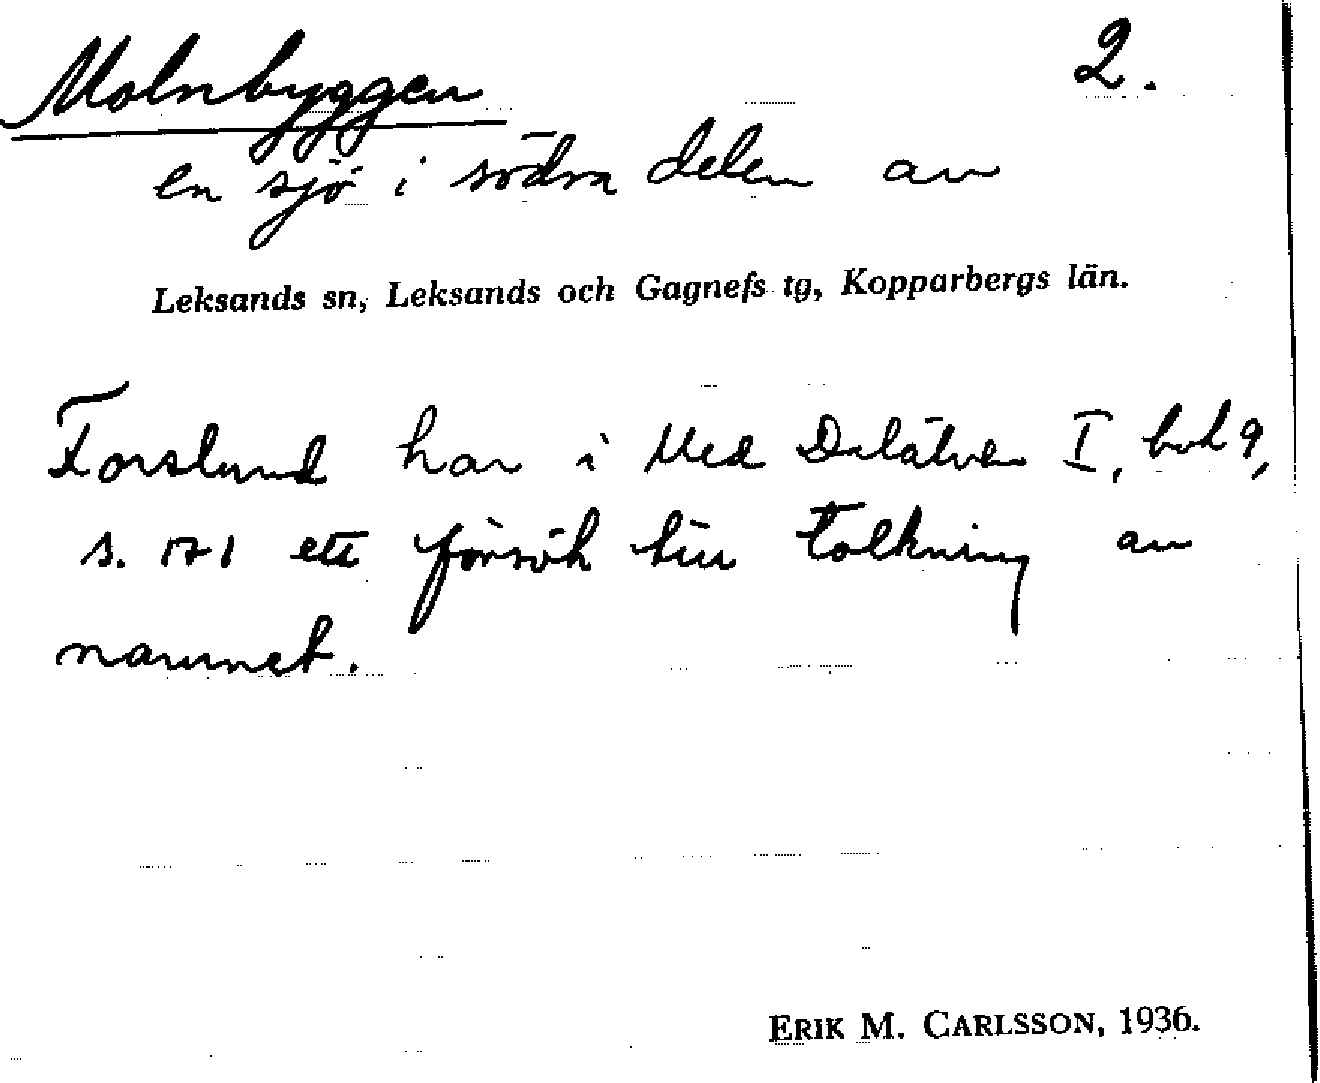 Molnbyggen 2.
en sjö i södra delen av
Leksands sn, Leksands och Gagnefs tg, Kopparbergs län.
Forslund har i Med Dalälven I, bok 9,
s. 171 ett försök till tolkning av
namnet.
ERIK M. CARLSSON, 1936.